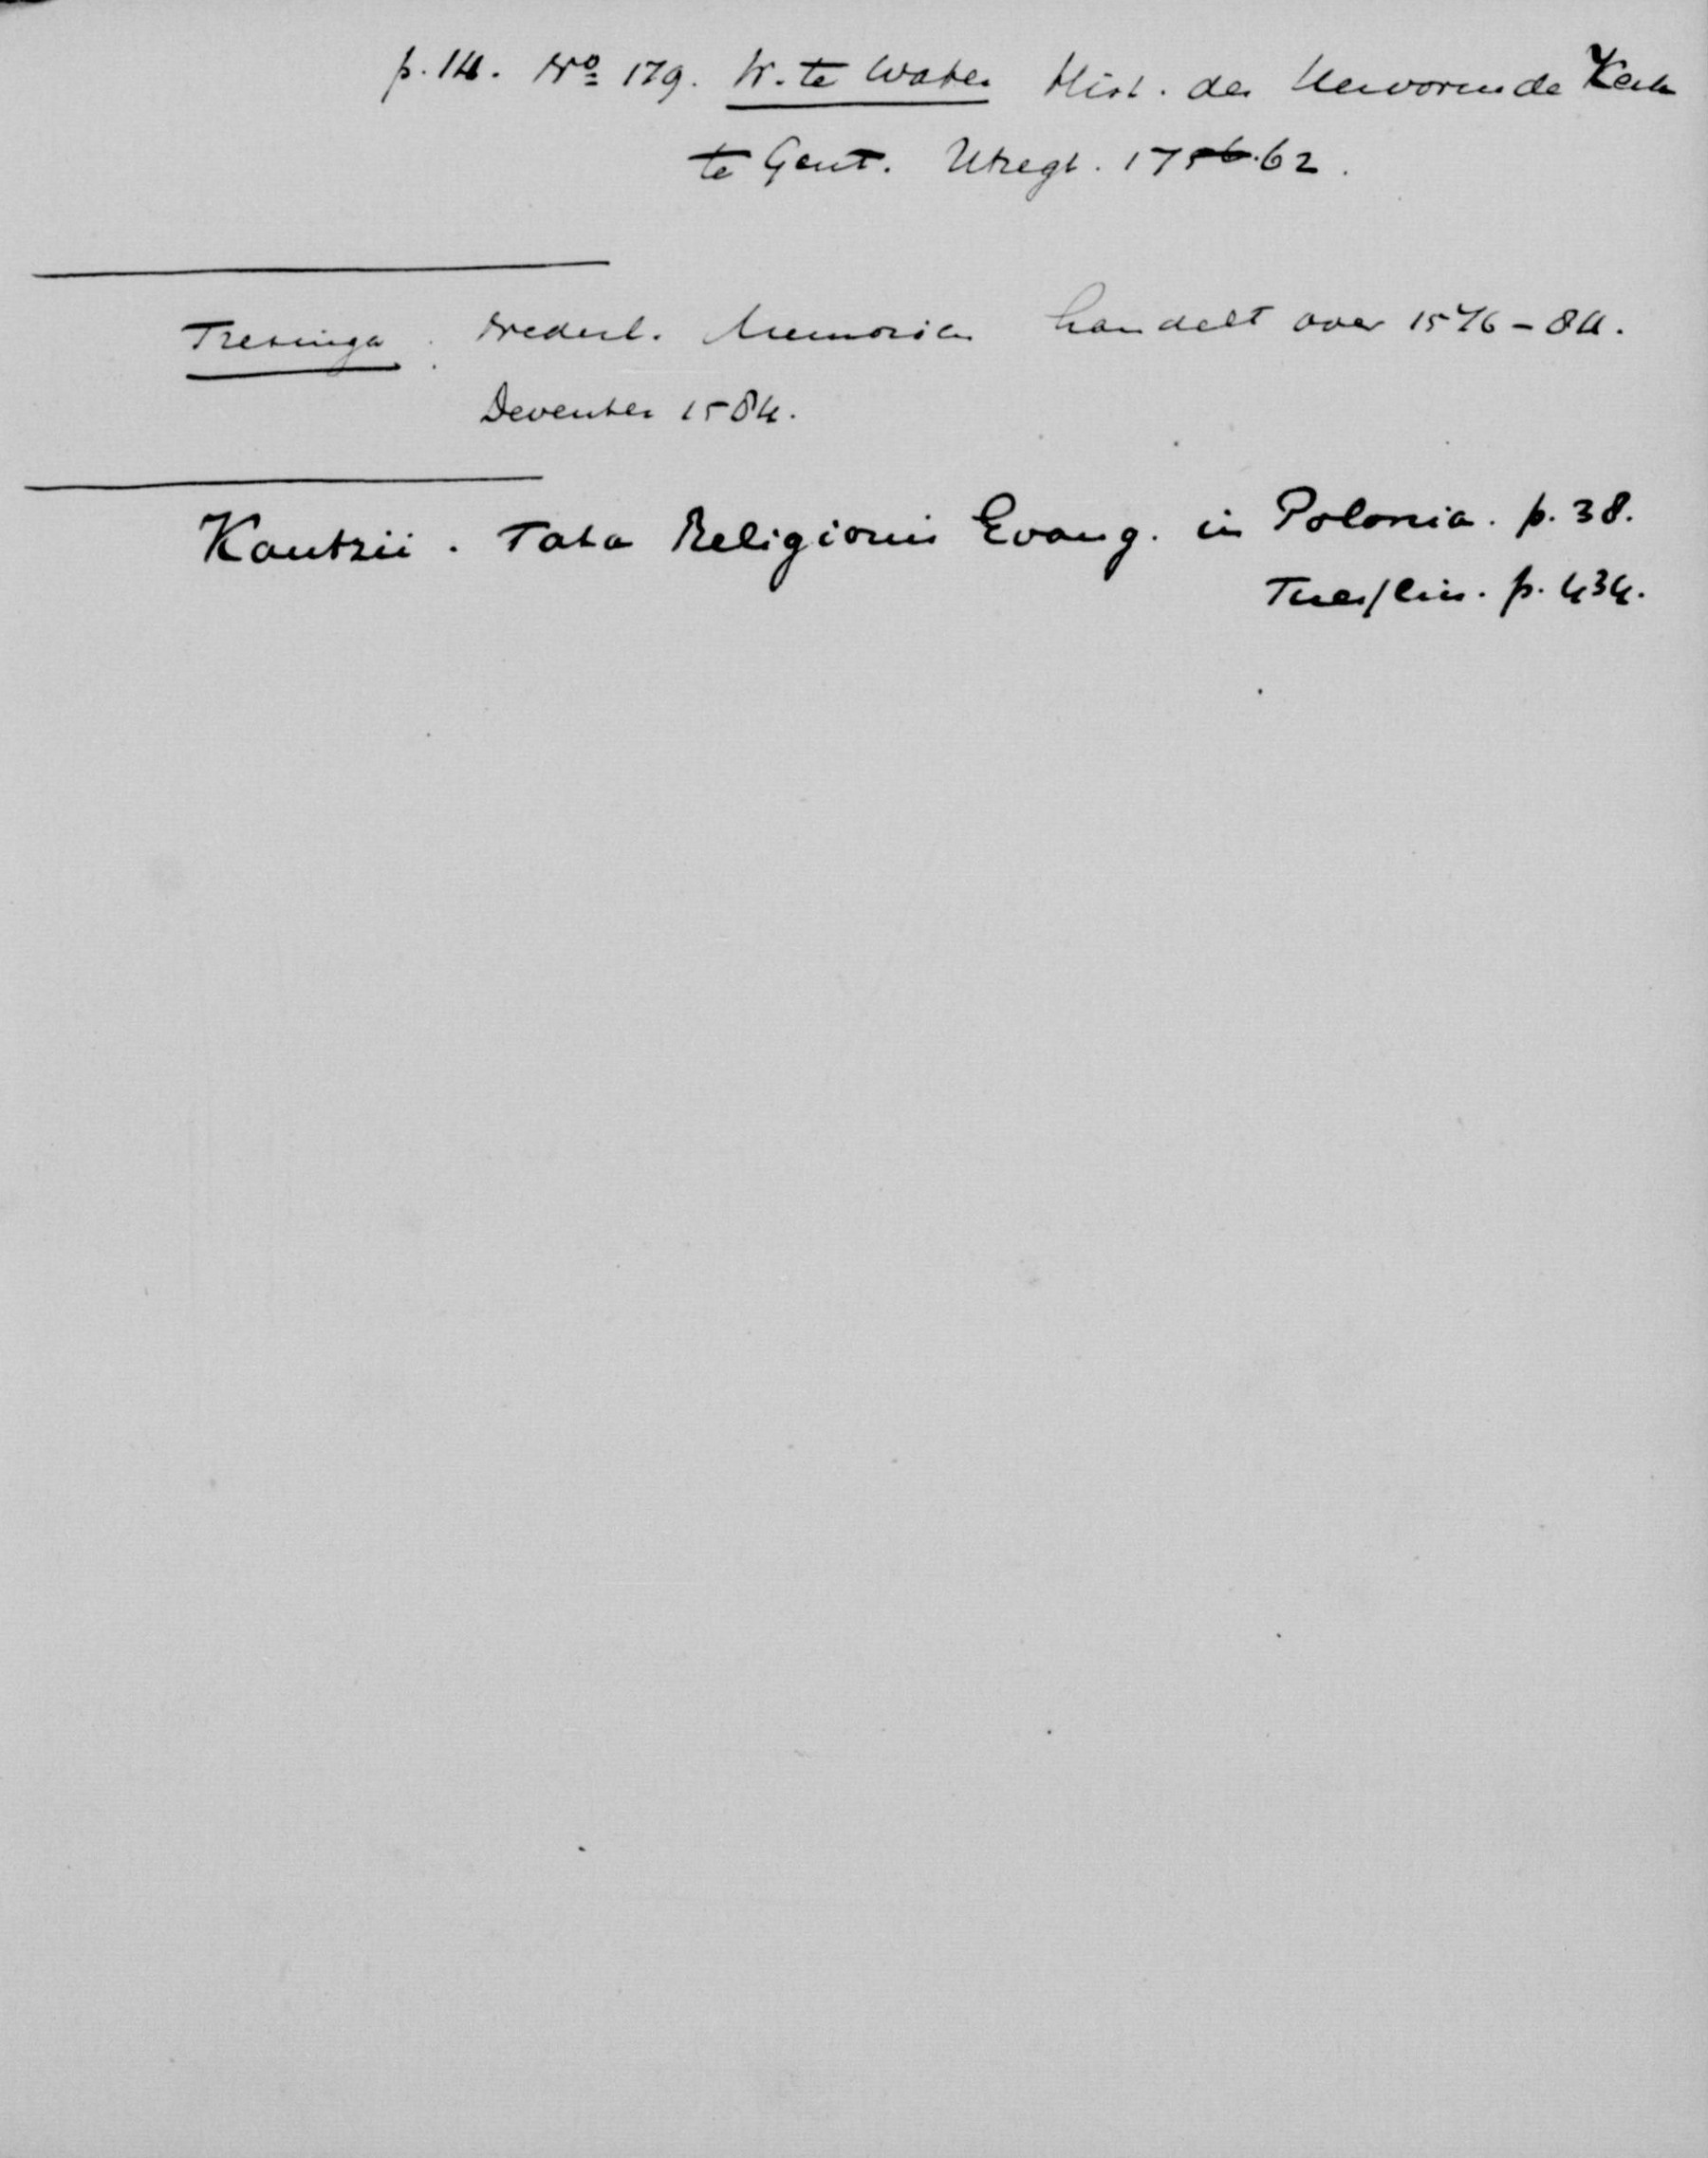 p. 14. No 179. W. te Water Hist. der Hervormde Kerk
te Gent. Utregt. 1756.62.
Tresinga. Nederl. Memorien handelt over 1576-84.
Deventer 1584.
Kautzii. Fata Religionis Evang. in Polonia. p. 38.
p. 434.